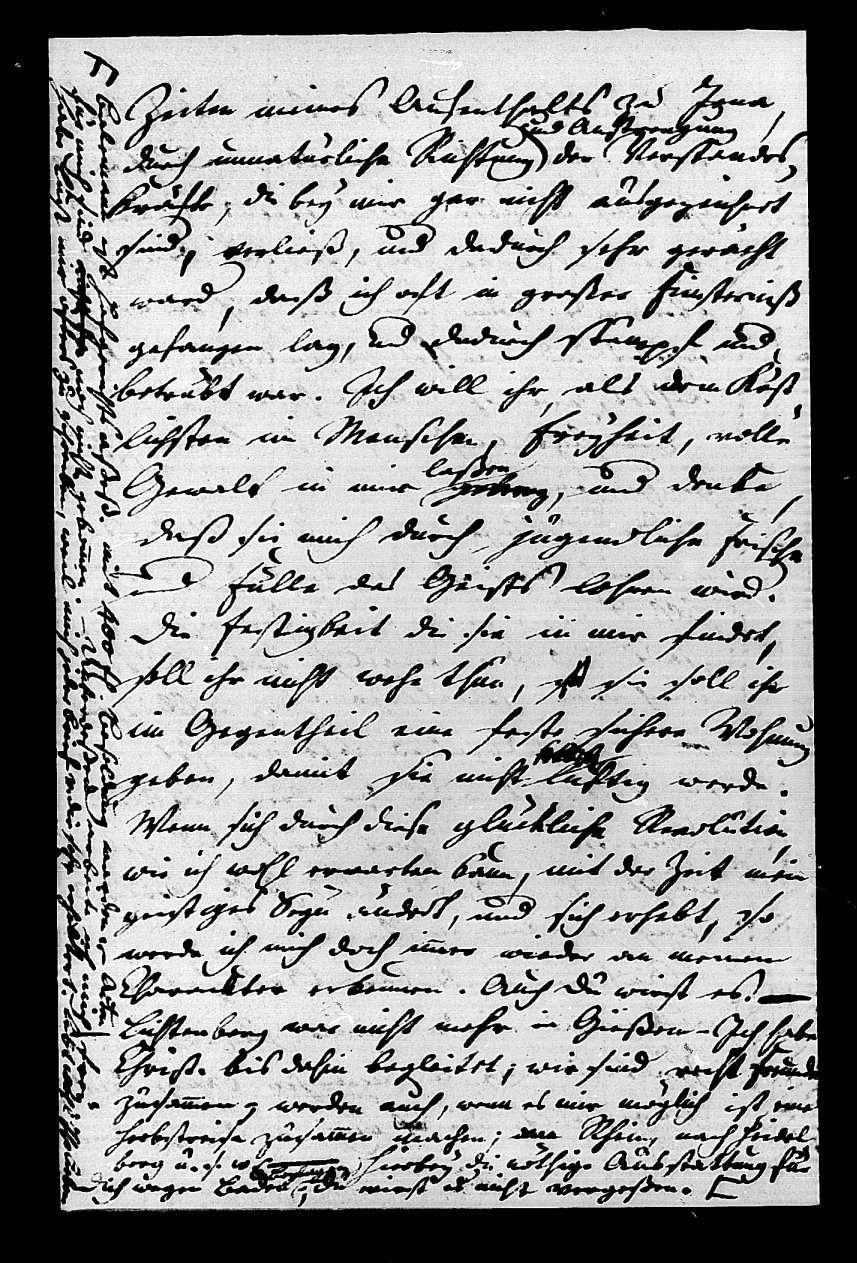 Zeiten meines Aufenthalts zu Jena,
und Anstrengung
durch unnatürliche Richtung der Verstandes
Kräfte, die bey mir gar nicht ausgezeichnet
sind, verließ, und dadurch sehr gerächt
ward, daß ich oft in großer Finsterniß
gefangen lag, und dadurch stumpf und
betrübt war. Ich will ihr, als dem Köst
lichsten im Menschen, Freyheit, volle
laßen
Gewalt in mir, und denke,
daß sie mich durch jugendliche Frische
und Fülle des Geistes lohnen wird.
Die Festigkeit die sie in mir findet,
soll ihr nicht wehe thun, sie soll ihr
im Gegentheil eine feste sichere Wohnung
geben, damit sie nicht luftig werde.
Wenn sich durch diese glückliche Revolution,
wie ich wohl erwarten kann, mit der Zeit mein
geistges Seyn ändert, und sich erhebt, so
werde ich mich doch immer wieder an meinem
Charackter erkennen. Auch du wirst es. —
Lichtenberg war nicht mehr in Gießen – Ich habe
Christ. bis dahin begleitet; wir sind recht Freunde
zusammen; werden auch, wenn es mir möglich ist, eine
Herbstreise zusammen machen; am Rhein, nach Heidel
berg u. s. w. Hierbey die nöthige Ausstattung für
dich wegen Baden; du wirst es nicht vergeßen.